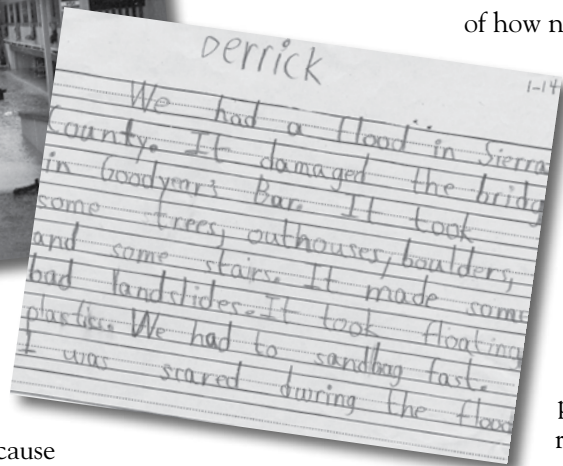 of how n
Derrick
1-14
We had a flood in Sierra
County. It damaged the bridg
in Goodyear's Bar. It took
some trees, outhouses, boulders,
and some stairs. It made some
bad landslides. It took floating
plastics. We had to sandbag fast.
I was scared during the flood
p
r
cause